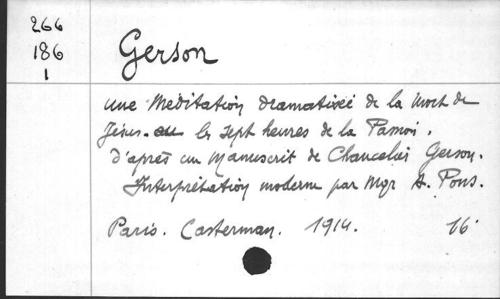 266
186
1
Gerson
une Méditation dramatisée de la Mort de
Jésus. ou les sept heures de la Passion.
d'après un Manuscrit de Chancelier Gerson.
Interprétation moderne par Mgr A. Pons.
Paris. Casterman. 1914. 16°